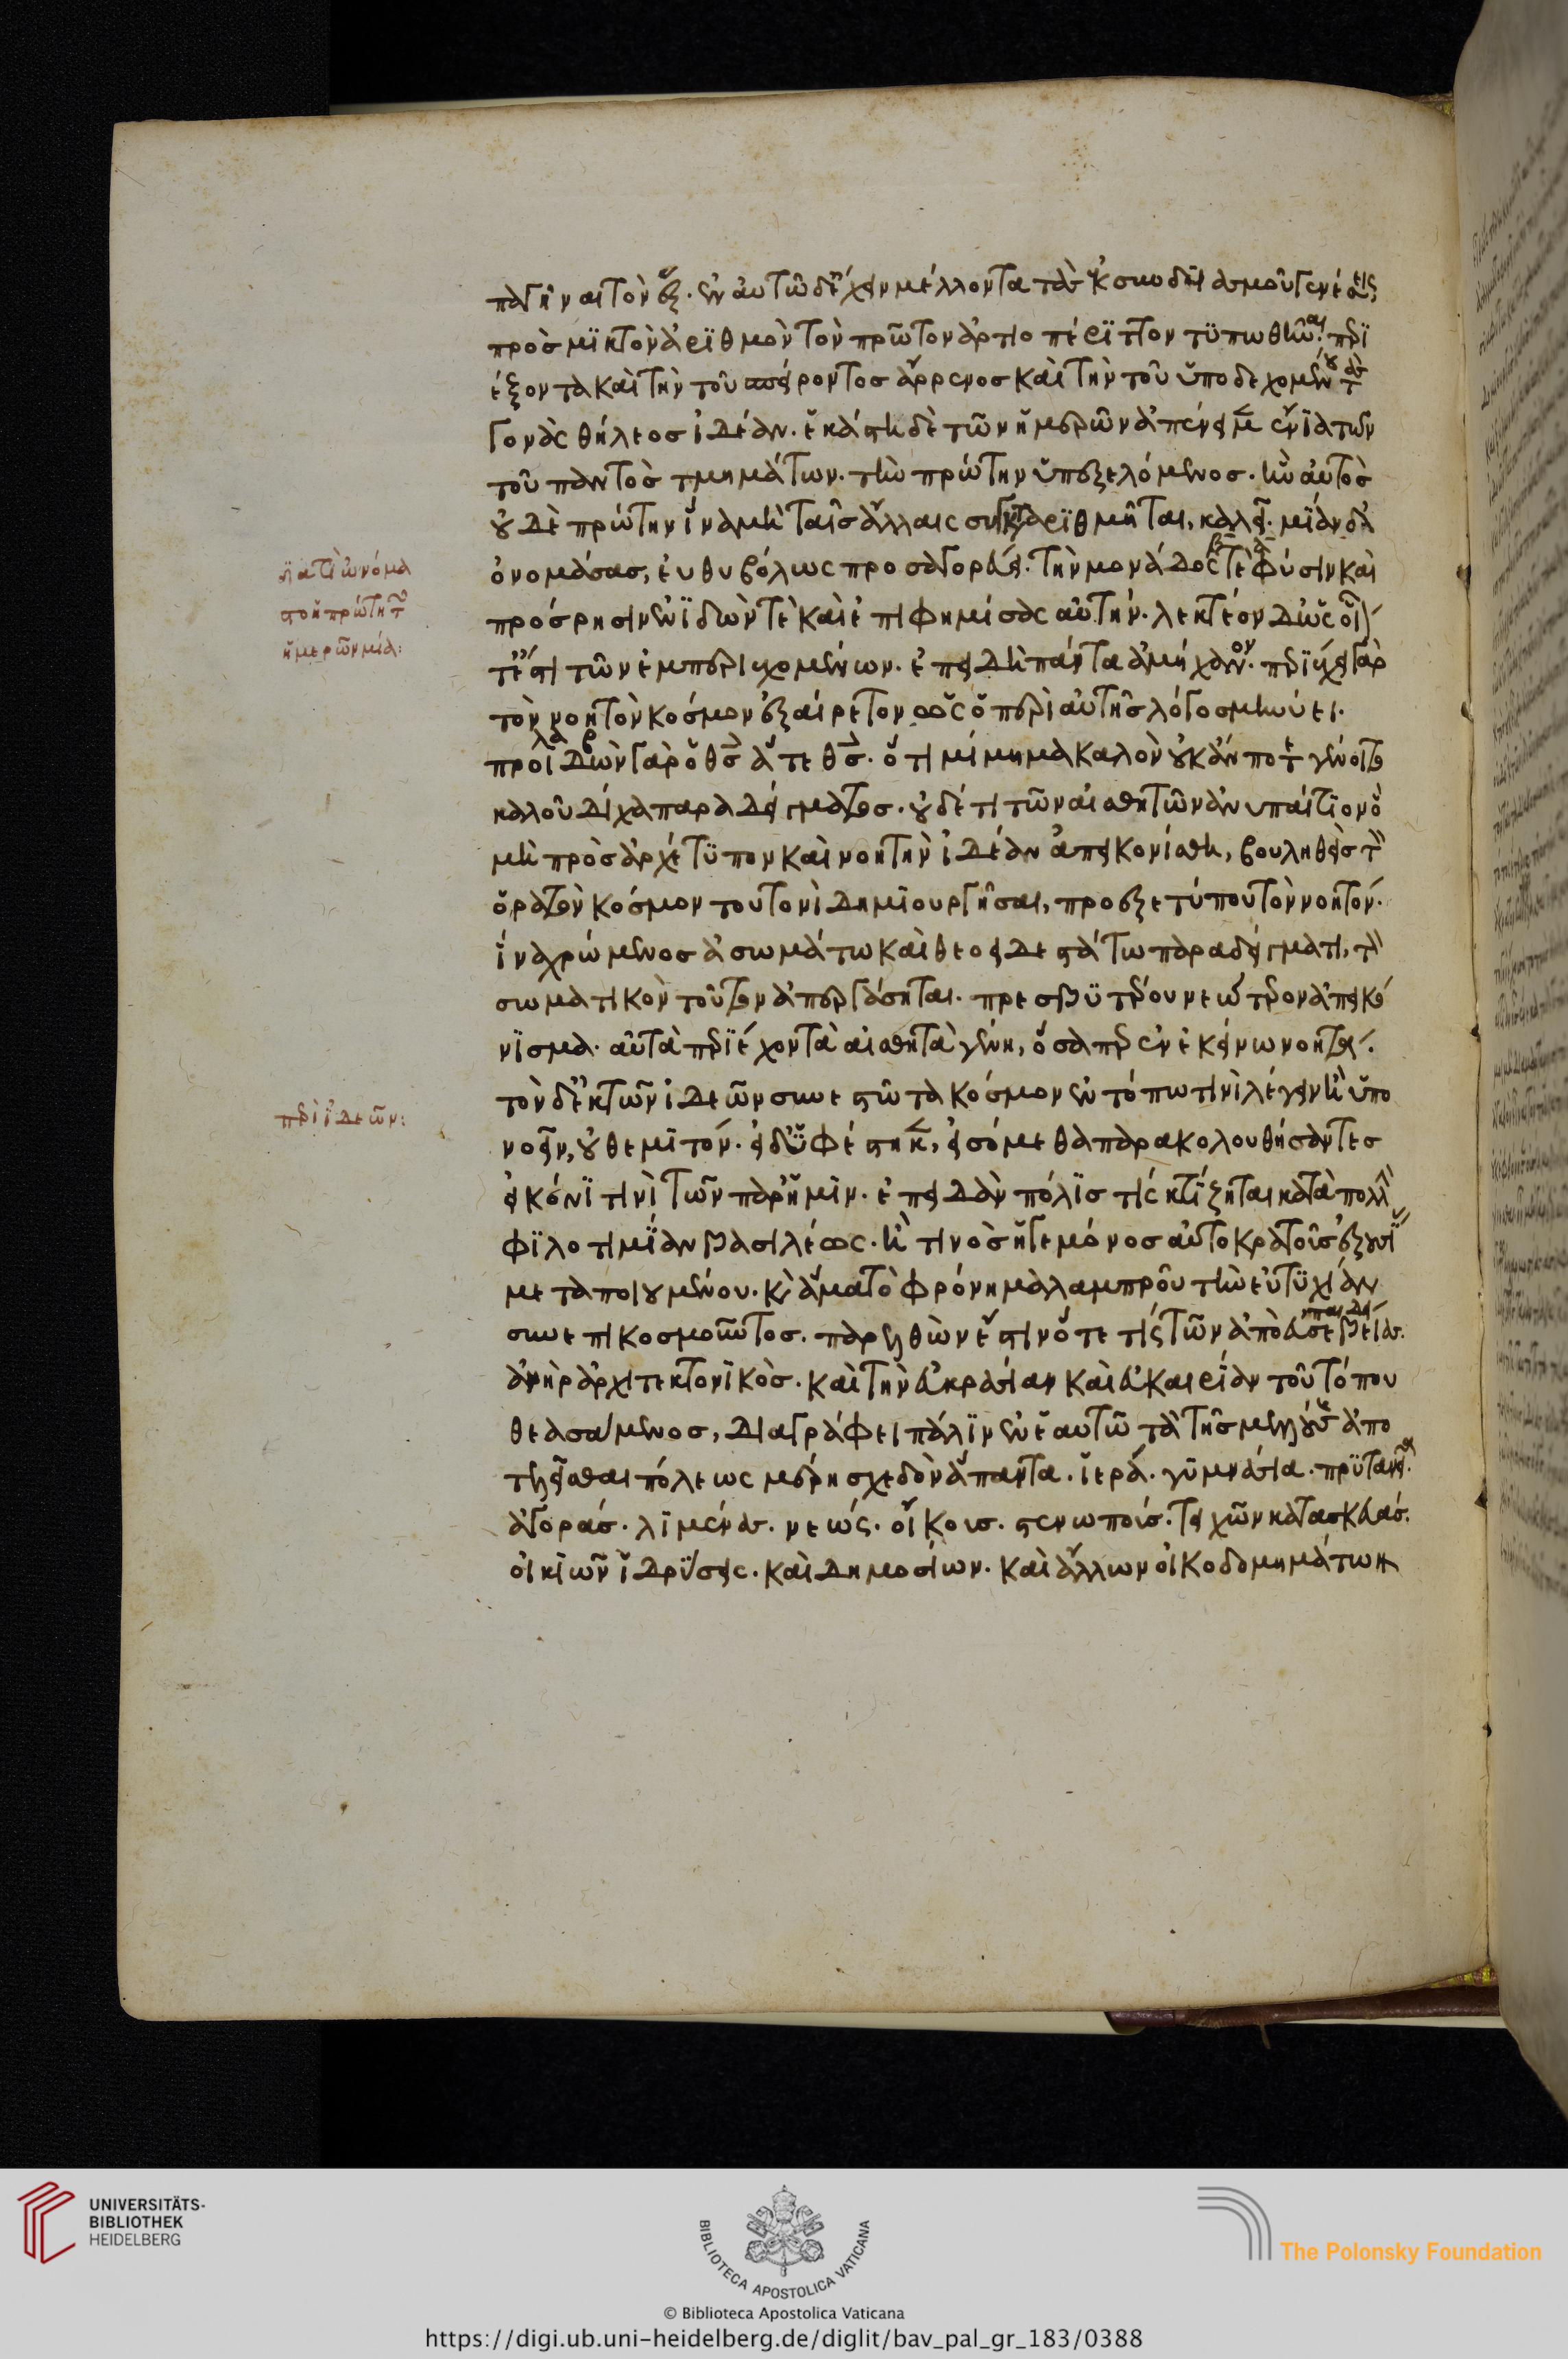 παγῆναι τὸν ἕξ. ἐν αὐτῶ δ' ἔχειν μέλλοντα τὰς ἐκ συνδϊασμοῦ γενέσεις
πρὸς μϊκτὸν ἀρϊθμὸν τὸν πρῶτον ἀρτιοπέριττον τϋπωθῆναι. περϊ
έξοντα καὶ τὴν τοῦ σπείροντος ἄρρενος καὶ τὴν τοῦ ὑποδεχομένου τὰς
γονὰς θήλεος ἰδέαν. ἑκάστη δὲ τῶν ἡμερῶν ἀπένειμεν ἔνϊα τῶν
τοῦ παντὸς τμημάτων. τὴν πρώτην ὑπεξελόμενος. ἣν αὐτὸς
οὐδὲ πρώτην ἵνα μὴ ταῖς ἄλλαις συγκαταρϊθμῆται, καλεῖ. μϊάν δὲ
ὀνομάσας, εὐθυβόλως προσαγορεύει. τὴν μονάδος τε φύσιν καὶ
πρόσρησιν ἐνϊδών τὲ καὶ ἐπιφημίσας αὐτήν. λεκτέον δὲ ὡς οἷόν
τέ ἐστι τῶν ἐμπεριεχομένων. ἐπειδὴ πάντα ἀμήχανον. περϊέχει γὰρ
τὸν νοητὸν κόσμον ἐξαίρετον ὡς ὁ περὶ αὐτῆς λόγος μηνύει.
προϊδὼν γὰρ ὁ θς ἅτε θς. ὅτι μίμημα καλὸν οὐκ ἄν ποτε γένοιτο
καλοῦ δίχα παραδείγματος. οὐδέ τι τῶν αἰσθητῶν ἀνυπαίτϊον ὃ
μὴ πρὸς ἀρχέτϋπον καὶ νοητὴν ἰδέαν ἀπεικονίσθη, βουληθεὶς τὸν
ὁρατὸν κόσμον τουτονὶ δημϊουργῆσαι, προεξετύπου τὸν νοητόν.
ἵνα χρώμενος ἀσωμάτω καὶ θεοειδεστάτω παραδείγματι, τὸν
σωματικὸν τοῦτον ἀπεργάσηται. πρεσβϋτέρου νεώτερον ἀπεικό
νϊσμα. αὐτὰ περϊέχοντα αἰσθητὰ γένη, ὅσαπερ ἐν ἐκείνω νοητά.
τὸν δ' ἐκ τῶν ἰδεῶν συνεστῶτα κόσμον ἐν τόπω τινὶ λέγειν ἢ ὑπο
νοεῖν, οὐ θεμϊτόν. εἰ δϋφέστηκε, εἰσόμεθα παρακολουθήσαντες
εἰκόνϊ τινὶ τῶν παρ' ἡμῖν. ἐπειδὰν πόλϊς τίς κτϊζηται κατὰ πολλὴν
φϊλοτιμϊαν βασιλέως. ἤ τινος ἡγεμόνος αὐτοκρατοῦς ἐξουσίας
μεταποιουμένου. καὶ ἅμα τὸ φρόνημα λαμπροῦ τὴν εὐτϋχίαν
συνεπικοσμοῦντος. παρελθὼν ἔστιν ὅτε τίς τῶν ἀπὸ παιδείας
ἀνὴρ ἀρχιτεκτονϊκὸς. καὶ τὴν εὐκρασίαν καὶ εὐκαιρίαν τοῦ τόπου
θεασάμενος, διαγράφει πάλϊν ἐν ἑαυτῶ τὰ τῆς μελλούσης ἀπο
τελεῖσθαι πόλεως μέρη σχεδὸν ἅπαντα. ἱερά. γϋμνάσια. πρϋτανεῖα.
ἀγοράς. λϊμένας. νεώς. οἴκους. στενωπούς. τειχῶν κατασκευάς.
οἰκϊῶν ἱδρύσεις. καὶ δημοσίων. καὶ ἄλλων οἰκοδομημάτων
διατί ὠνόμα
στο ἡ πρώτη τῶν
ἡμερῶν μία:
περὶ ἰδεῶν:
UNIVERSITÄTS-
BIBLIOTHEK
HEIDELBERG
BIBLIOTECA APOSTOLICA VATICANA
The Polonsky Foundation
© Biblioteca Apostolica Vaticana
https://digi.ub.uni-heidelberg.de/diglit/bav_pal_gr_183/0388